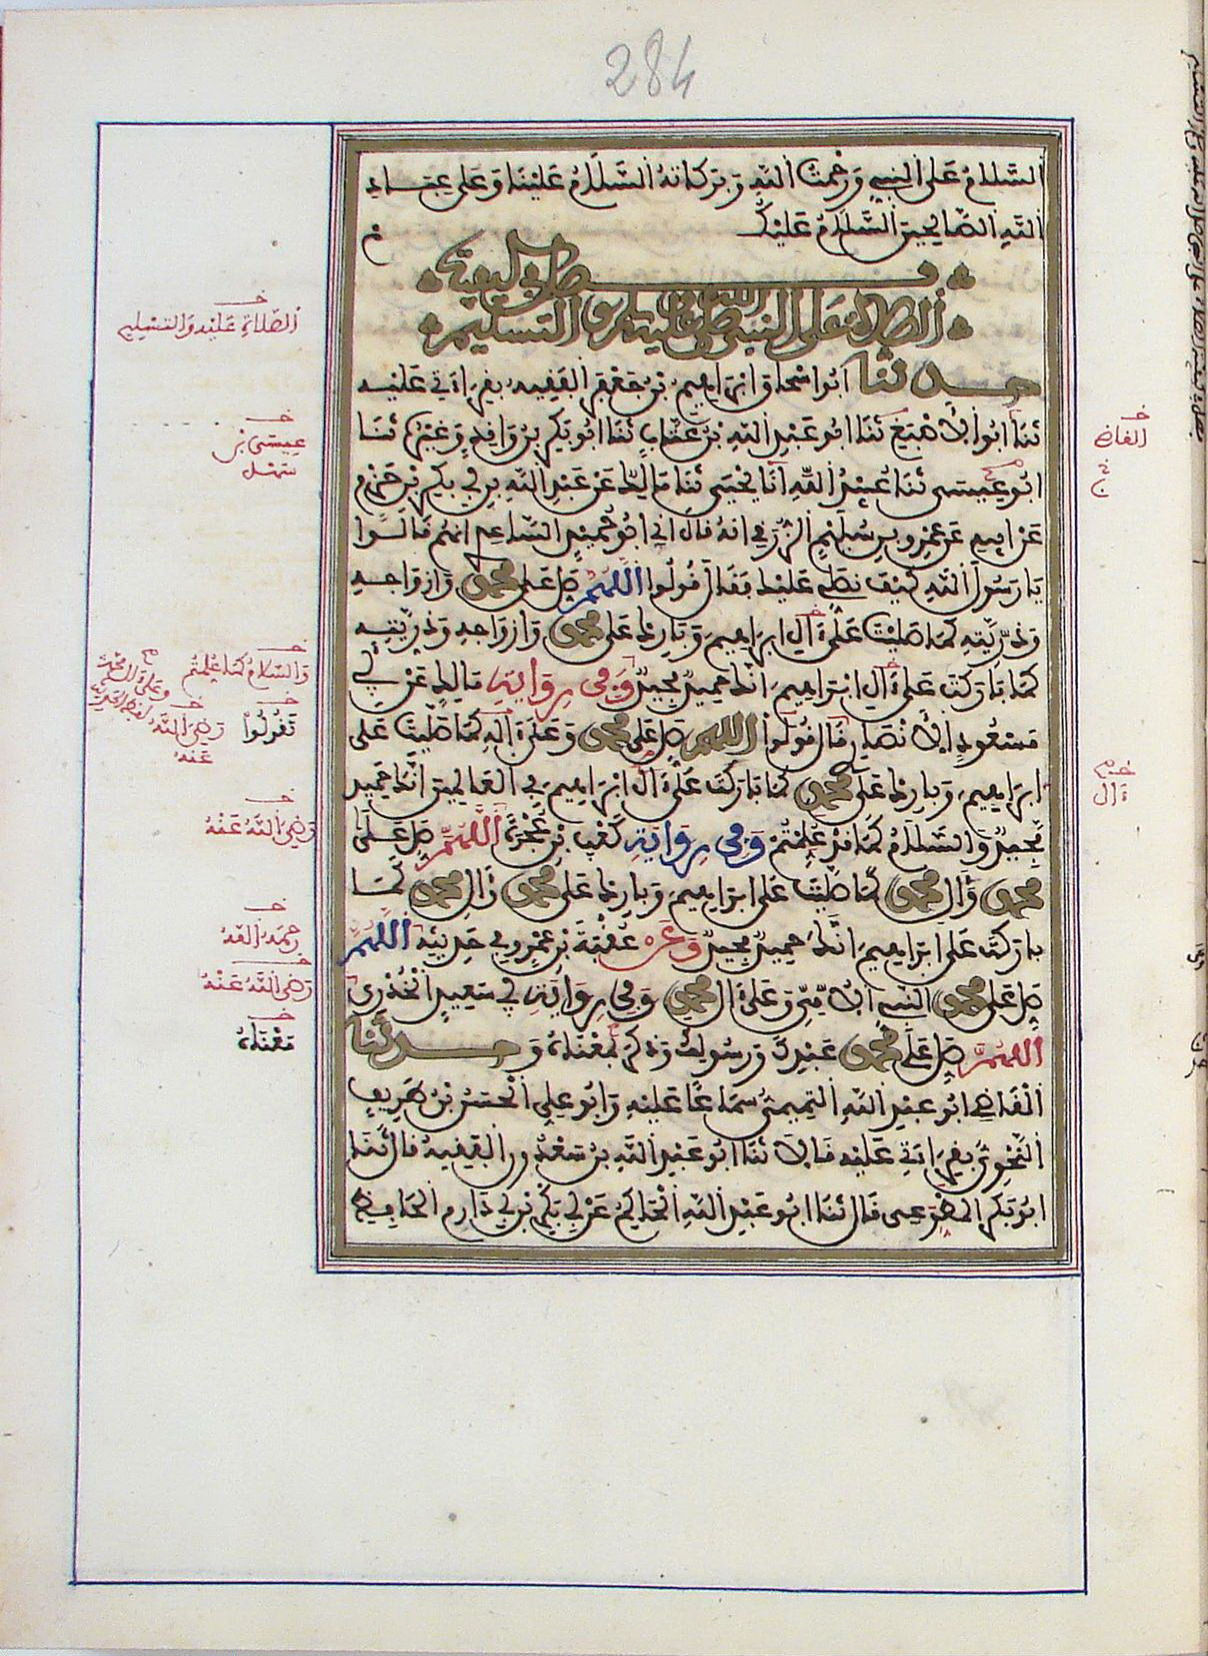 284
السلام على النبي ورحمت الله وبركاته السلام علينا وعلى عباد
الله الصالحين السلام عليك
فصل في كيفية
الصلاة على النبي صلى الله عليه وسلم والتسليم
حدثنا ابوا سحاق ابراهيم بن جعفر الفقيه بقراءتي عليه
ثنا ابوا لاصبغ ثنا ابو عبد الله بن عتاب ثنا ابو بكر بن وافد وغيره ثنا
ابو عيسى ثنا عبيد الله انا يحيى ثنا مالك عن عبد الله بن ابي بكر بن حزم
عن ابيه عن عمرو بن سليم الزرقي انه قال اني ابو حميد الساعدي انهم قالوا
يا رسول الله كيف نصلي عليك فقال قولوا اللهم صل على محمد وازواجه
وذريته كما صليت على ءال ابراهيم وبارك على محمد وازواجه وذريته
كما باركت على ءال ابراهيم انك حميد مجيد وفي رواية مالك عن ابي
مسعود الانصاري قال قولوا اللهم صل على محمد وعلى ءاله كما صليت على
ابراهيم وبارك على محمد كما باركت على ءال ابراهيم في العالمين انك حميد
مجيد والسلام كما قد علمتم وفي رواية كعب بن عجرة اللهم صل على
محمد وءال محمد كما صليت على ابراهيم وبارك على محمد وءال محمد كما
باركت على ابراهيم انك حميد مجيد وعن عقبة بن عمرو في حديثه اللهم
صل على محمد النبي الامي وعلى ءال محمد وفي رواية ابي سعيد الخدري
اللهم صل على محمد عبدك ورسولك وذكر معناه وحدثنا
القاضي ابو عبد الله التميمي سماعا عليه وابو علي الحسن بن طريف
النحوي بقراءتي عليه قالا ثنا ابو عبد الله بن سعدون الفقيه قال ثنا
ابو بكر المطوعي قال ثنا ابو عبد الله الحاكم عن ابي بكر بن ابي دارم الحافظ
الصلاة عليه والتسليم
عيسى بن
سهل
والسلام كما علمتم
تقولوا
رضي الله
عنه
رضي الله عنه
رحمه الله
رضي الله عنه
معناه
ءال